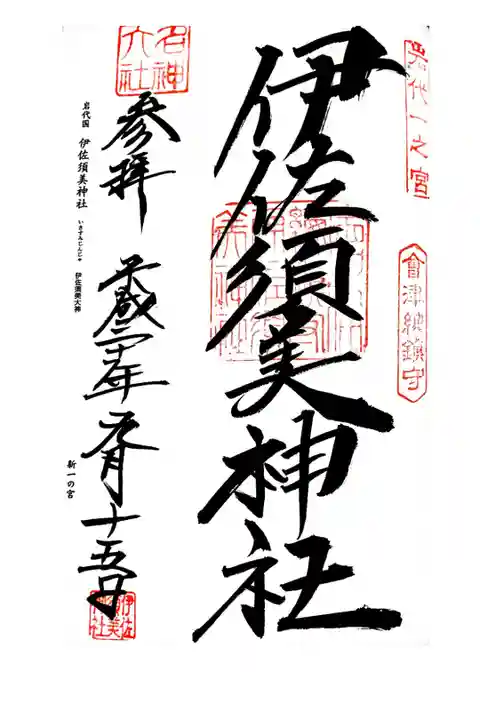 岩代一之宮
會津總鎮守
伊佐須美神社
名神大社
参拝
岩代国 伊佐須美神社 いさすみじんじゃ
伊佐須美大神
新一の宮
平成二十六年 元月 十五日
伊佐須美神社